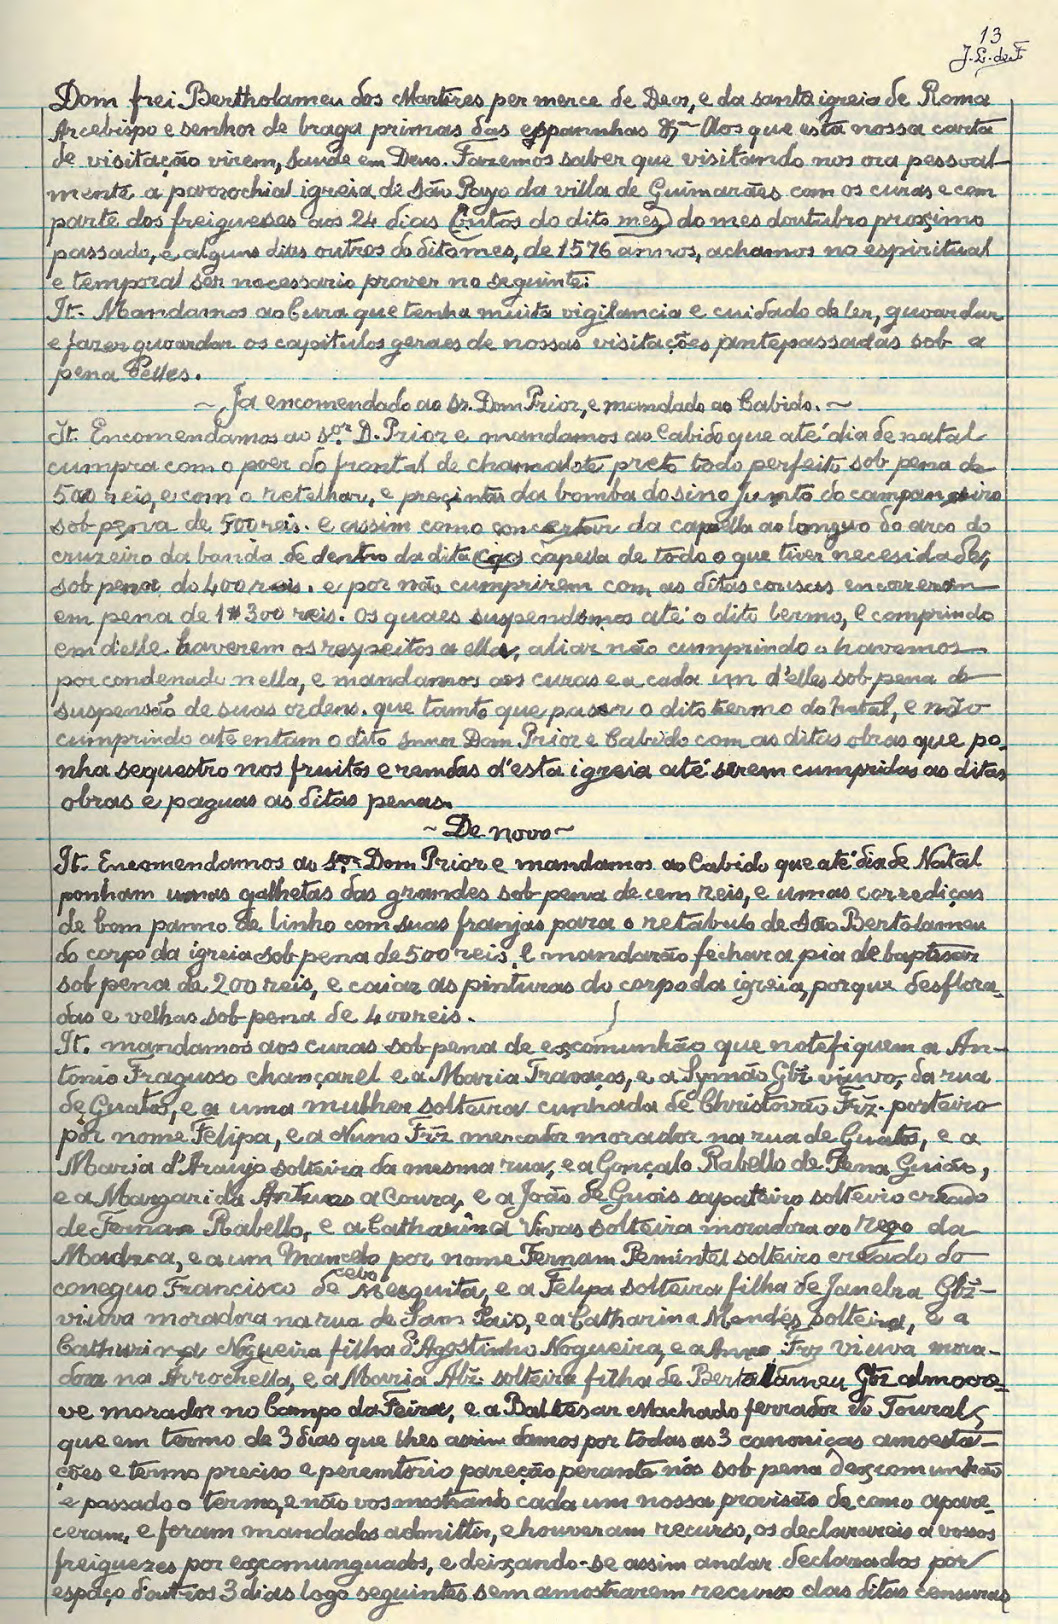 13
J. L. de F
Dom frei Bertholameu dos Martires per merce de Deos, e da santa igreia de Roma
Arcebispo e senhor de braga primas das espannhas &ª Aos que esta nossa carta
de visitação virem, saude em Deus. Fazemos saber que visitando nos ora pessoal
mente a parrochial igreia de São Payo da villa de Guimarães com os curas e com
parte dos freigueses aos 24 dias (outos do dito mes) do mes doutubro proximo
passado, e alguns dias outros do dito mes, de 1576 annos, achamos no espiritual
e temporal ser necessario prover no seguinte:
It. Mandamos ao Cura que tenha muita vigilancia e cuidado de ler, guoardar
e fazer guoardar os capitulos geraes de nossas visitações antepassadas sob a
pena delles.
~ Ja encomendado ao Sr. Dom Prior, e mandado ao Cabido. ~
It. Encomendamos ao Sºr D. Prior e mandamos ao Cabido que até dia de natal
cumpra com o poer do frontal de chamalote preto todo perfeito sob pena de
500 reis, e com o retelhar, e precintar da bomba do sino junto do campanairo
sob pena de 500 reis. e assim como concertar da capella ao longuo do arco do
cruzeiro da banda de dentro da dita capella de todo o que tiver necesidade,
sob pena de 400 reis. e por não cumprirem com as ditas cousas encoreram
em pena de 1#300 reis. os quaes suspendemos até o dito termo, e comprindo
em delle haverem os respeitos a ella, aliar não cumprindo o havemos
por condenado nella, e mandamos aos curas e a cada um d'elles sob pena de
suspensão de suas ordens. que tamto que pasar o dito termo do Natal, e não
cumprindo até entam o dito snnor Dom Prior e Cabido com as ditas obras que po-
nha sequestro nos fruitos e remdas d'esta igreia até serem cumpridas as ditas
obras e paguas as ditas penas.
~ De novo ~
It. Encomendamos ao Sºr Dom Prior e mandamos ao Cabido que até dia de Natal
ponham umas galhetas das grandes sob pena de cem reis, e umas corrediças
de bom panno de linho com suas franjas para o retabulo de São Bertolameu
do corpo da igreia sob pena de 500 reis, e mandarão fechar a pia de baptisar
sob pena de 200 reis, e caiar as pinturas do corpo da igreia, porque desflora-
das e velhas sob pena de 400 reis.
It. mandamos aos curas sob pena de excomunhão que notefiquem a An-
tonio Fragusso chançarel e a Maria Travaços, e a Symão Glz viuvo, da rua
de Guatos, e a uma mulher solteira cunhada de Christovão Frz. porteiro
por nome Felipa, e a Nuno Frz mercador morador na rua de Guatos, e a
Maria d'Araujo solteira da mesma rua, e a Gonçalo Rabello de Pena Guião,
e a Margarida Antunes a Coura, e a João de Guois sapateiro solteiro creado
de Fernam Rabello, e a Catharina Vivas solteira moradora ao rego da
Madroa, e a um Mancebo por nome Fernam Pemintel solteiro creado do
cebo
coneguo Francisco de Mesquita, e a Felipa solteira filha de Janebra Glz
viuva moradora na rua de Sam Paio, e a Catharina Mendes solteira, e a
Catharina Nogueira filha d'Agostinho Nogueira, e a Anna Frz viuva mora-
dora na Arrochella, e a Maria Alz. solteira filha de Bertolameu Glz almocre-
ve morador no Campo da Feira, e a Baltesar Machado ferrador do Toural,
que em termo de 3 dias que lhes asim damos por todas as 3 canonicas amoesta-
ções e termo preciso e peremtorio pareção perante nós sob pena dexcomunhão
e passado o termo, e não vos mostrando cada um nossa provisão de como apare
ceram, e foram mandados admitir, e houveram recurso, os declarareis a vossos
freiguezes por excomunguados, e deixando-se assim andar declarados por
espaço d'outros 3 dias logo seguintes sem amostrarem recurso das ditas censuras